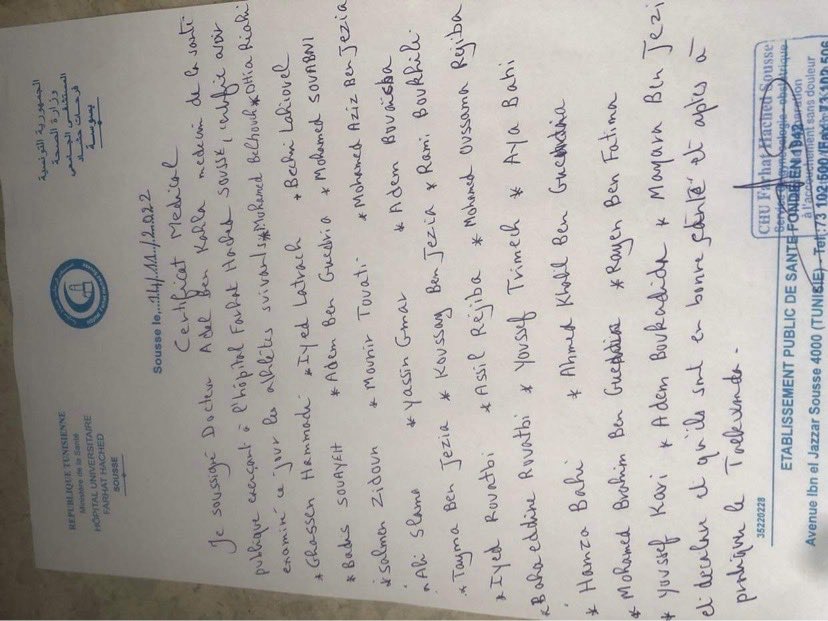 REPUBLIQUE TUNISIENNE
Ministère de la Santé
HÔPITAL UNIVERSITAIRE
FARHAT HACHED
SOUSSE
الجمهورية التونسية
وزارة الصحة
المستشفى الجامعي
فرحات حشاد
بسوسة
Sousse le,...14/11/2022
Certificat Medical
Je soussigné Docteur Adel Ben Kahla medecin de la santé
publique exerçant à l'hôpital Farhat Hached Sousse, certifie avoir
examiné ce jour les athlètes suivants *Mohamed Belhouk *Dhia Riahi
*Ghassen Hammadi *Iyed Latrach *Bechir Lahiouel
*Badis SOUAYEH *Adem Ben Guedria *Mohamed SOUABNI
*Salmen Zidoun *Mounir Touati *Mohamed Aziz Ben Jezia
*Ali Slama *Yassin Gmar *Adem Bouaicha
*Tayma Ben Jezia *Koussay Ben Jezia *Rami Boukhili
*Iyed Rouatbi *Assil Rejiba *Mohamed Oussama Rejiba
*Bahaeddine Rouatbi *Youssef Trimech *Aya Bahi
*Hamza Bahi *Ahmed Khalil Ben Guedria
*Mohamed Brahim Ben Guedria *Rayen Ben Fatima
*Youssef Kari *Adem Boukadida *Mayara Ben Jezi
et declare et qu'ils sont en bonne santé et aptes à
pratiquer le Taekwondo.
CHU Farhat Hached Sousse
à l'accouchement sans douleur
35220228
ETABLISSEMENT PUBLIC DE SANTE FONDE EN 1942
Avenue Ibn el Jazzar Sousse 4000 (TUNISIE) - Tel : 73 102 500 (Fax) 73 102 506